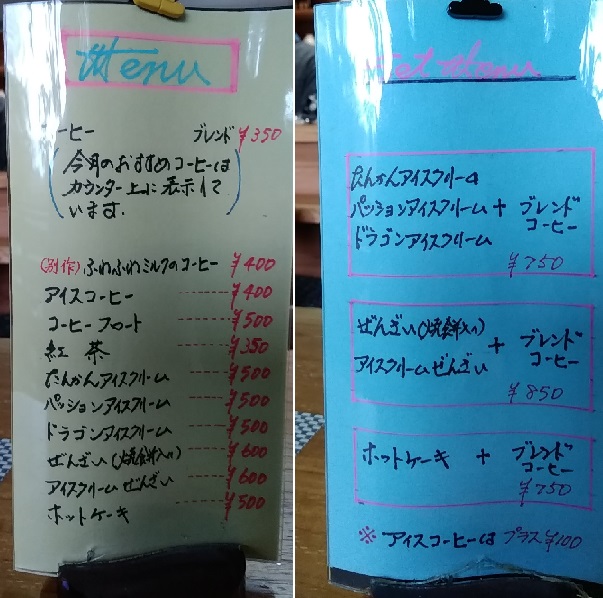 Menu
ーヒー ブレンド ¥350
(今月のおすすめコーヒーは
カウンター上に表示して
います.)
ふわふわミルクのコーヒー ¥400
アイスコーヒー ------ ¥400
コーヒーフロート ------ ¥500
紅 茶 ------ ¥350
たんかんアイスクリーム ------ ¥500
パッションアイスクリーム ------ ¥500
ドラゴンアイスクリーム ------ ¥500
ぜんざい(焼餅入り) ------ ¥600
アイスクリームぜんざい ------ ¥600
ホットケーキ ------ ¥500
Set Menu
たんかんアイスクリーム
パッションアイスクリーム + ブレンド
コーヒー
ドラゴンアイスクリーム
¥750
ぜんざい(焼餅入り)
+ ブレンド
コーヒー
アイスクリームぜんざい
¥850
ホットケーキ + ブレンド
コーヒー
¥750
※ アイスコーヒーは プラス¥100